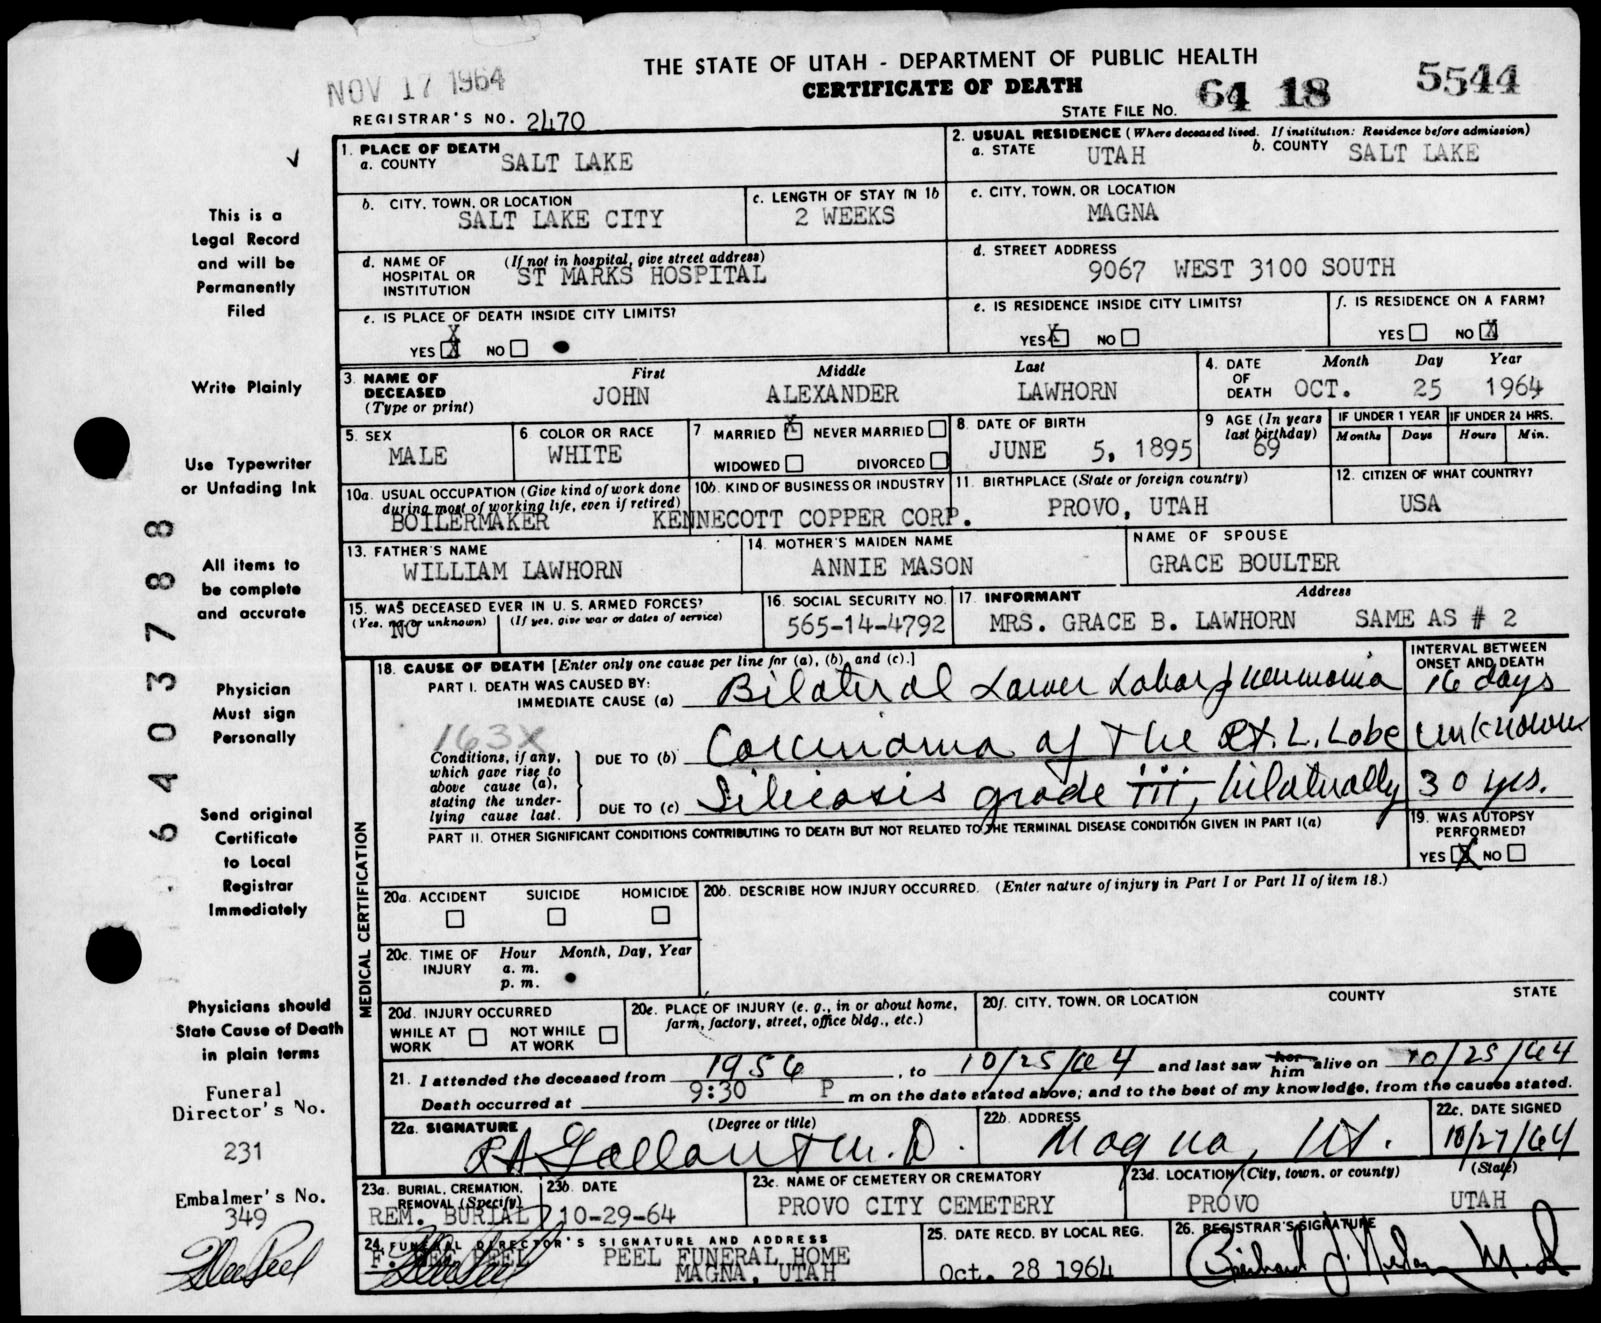 THE STATE OF UTAH - DEPARTMENT OF PUBLIC HEALTH
NOV 17 1964
CERTIFICATE OF DEATH
STATE FILE NO. 64 18 5544
REGISTRAR'S NO. 2470
1. PLACE OF DEATH
a. COUNTY SALT LAKE
2. USUAL RESIDENCE (Where deceased lived. If institution: Residence before admission)
a. STATE UTAH b. COUNTY SALT LAKE
b. CITY, TOWN, OR LOCATION
SALT LAKE CITY
c. LENGTH OF STAY IN 1b
2 WEEKS
c. CITY, TOWN, OR LOCATION
MAGNA
d. NAME OF HOSPITAL OR INSTITUTION (If not in hospital, give street address)
ST MARKS HOSPITAL
d. STREET ADDRESS
9067 WEST 3100 SOUTH
e. IS PLACE OF DEATH INSIDE CITY LIMITS?
YES X NO
e. IS RESIDENCE INSIDE CITY LIMITS?
YES X NO
f. IS RESIDENCE ON A FARM?
YES NO X
3. NAME OF DECEASED (Type or print)
First Middle Last
JOHN ALEXANDER LAWHORN
4. DATE OF DEATH
Month Day Year
OCT. 25 1964
5. SEX
MALE
6 COLOR OR RACE
WHITE
7 MARRIED X NEVER MARRIED
WIDOWED DIVORCED
8. DATE OF BIRTH
JUNE 5, 1895
9 AGE (In years last birthday)
69
IF UNDER 1 YEAR
Months Days
IF UNDER 24 HRS.
Hours Min.
10a. USUAL OCCUPATION (Give kind of work done during most of working life, even if retired)
BOILERMAKER
10b. KIND OF BUSINESS OR INDUSTRY
KENNECOTT COPPER CORP.
11. BIRTHPLACE (State or foreign country)
PROVO, UTAH
12. CITIZEN OF WHAT COUNTRY?
USA
13. FATHER'S NAME
WILLIAM LAWHORN
14. MOTHER'S MAIDEN NAME
ANNIE MASON
NAME OF SPOUSE
GRACE BOULTER
15. WAS DECEASED EVER IN U. S. ARMED FORCES?
(Yes, no, or unknown) (If yes, give war or dates of service)
NO
16. SOCIAL SECURITY NO.
565-14-4792
17. INFORMANT Address
MRS. GRACE B. LAWHORN SAME AS # 2
MEDICAL CERTIFICATION
18. CAUSE OF DEATH [Enter only one cause per line for (a), (b), and (c).]
INTERVAL BETWEEN ONSET AND DEATH
PART I. DEATH WAS CAUSED BY:
IMMEDIATE CAUSE (a) Bilateral Lower Lobar pneumonia 16 days
163X
Conditions, if any, which gave rise to above cause (a), stating the underlying cause last.
DUE TO (b) Carcinoma of the Rt. L. Lobe unknown
DUE TO (c) Silicosis grade III, bilaterally 30 yrs.
PART II. OTHER SIGNIFICANT CONDITIONS CONTRIBUTING TO DEATH BUT NOT RELATED TO THE TERMINAL DISEASE CONDITION GIVEN IN PART I(a)
19. WAS AUTOPSY PERFORMED?
YES X NO
20a. ACCIDENT SUICIDE HOMICIDE
20b. DESCRIBE HOW INJURY OCCURRED. (Enter nature of injury in Part I or Part II of item 18.)
20c. TIME OF INJURY Hour Month, Day, Year
a. m.
p. m.
20d. INJURY OCCURRED
WHILE AT WORK NOT WHILE AT WORK
20e. PLACE OF INJURY (e. g., in or about home, farm, factory, street, office bldg., etc.)
20f. CITY, TOWN, OR LOCATION COUNTY STATE
21. I attended the deceased from 1956, to 10/25/64 and last saw her him alive on 10/25/64
Death occurred at 9:30 P m on the date stated above; and to the best of my knowledge, from the causes stated.
22a. SIGNATURE (Degree or title)
RA Gallant M.D.
22b. ADDRESS
Magna, Ut.
22c. DATE SIGNED
10/27/64
23a. BURIAL, CREMATION, REMOVAL (Specify)
REM. BURIAL
23b. DATE
10-29-64
23c. NAME OF CEMETERY OR CREMATORY
PROVO CITY CEMETERY
23d. LOCATION (City, town, or county) (State)
PROVO UTAH
24. FUNERAL DIRECTOR'S SIGNATURE AND ADDRESS
F. DEE PEEL PEEL FUNERAL HOME
MAGNA, UTAH
25. DATE RECD. BY LOCAL REG.
Oct. 28 1964
26. REGISTRAR'S SIGNATURE
M.D
This is a
Legal Record
and will be
Permanently
Filed
Write Plainly
Use Typewriter
or Unfading Ink
All items to
be complete
and accurate
Physician
Must sign
Personally
Send original
Certificate
to Local
Registrar
Immediately
Physicians should
State Cause of Death
in plain terms
Funeral
Director's No.
231
Embalmer's No.
349
6403788